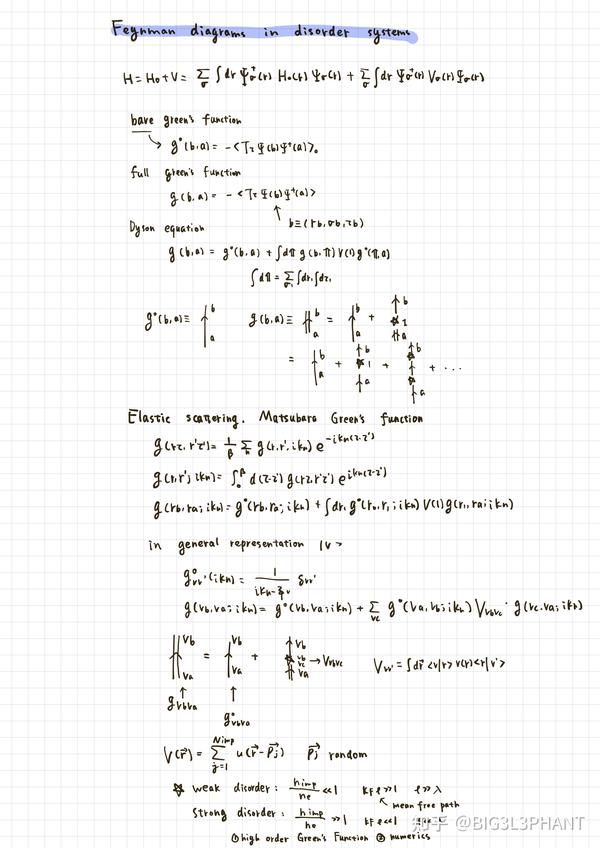 Feynman diagrams in disorder systems
H = H₀ + V = Σ_σ ∫dr Ψ_σ⁺(r) H₀(r) Ψ_σ(r) + Σ_σ ∫dr Ψ_σ⁺(r) V_σ(r) Ψ_σ(r)
bare green's function
g°(b,a) = -<T_τ Ψ(b)Ψ⁺(a)>₀
full green's function
g(b,a) = -<T_τ Ψ(b)Ψ⁺(a)>
b≡(rb,σb,τb)
Dyson equation
g(b,a) = g°(b,a) + ∫d1 g(b,1) V(1) g°(1,a)
∫d1 = Σ_σ₁ ∫dr₁ ∫dτ₁
g°(b,a) ≡ b a g(b,a) ≡ b a = b a + b 1 a
= b a + b 1 a + b a + ...
Elastic scattering. Matsubara Green's function
g(rτ, r'τ') = 1/β Σ_n g(r,r',ikn) e^{-ikn(τ-τ')}
g(r,r';ikn) = ∫₀^β d(τ-τ') g(rτ,r'τ') e^{ikn(τ-τ')}
g(rb,ra;ikn) = g°(rb,ra;ikn) + ∫dr₁ g°(rb,r₁;ikn) V(1) g(r₁,ra;ikn)
in general representation |ν>
g°_νν'(ikn) = 1/(ikn-ξν) δνν'
g(νb,νa;ikn) = g°(νb,νa;ikn) + Σ_νc g°(νa,νb;ikn) V_νbνc · g(νc,νa;ikn)
νb νa = νb νa + νb νb νc νa → Vνbνc Vνν' = ∫dr⃗ <ν|r> V(r) <r|ν'>
gνbνa g°νbνa
V(r⃗) = Σ_{j=1}^{Nimp} u(r⃗-P⃗j) P⃗j random
☆ weak disorder: nimp/ne <<1 kFℓ>>1 ℓ>>λ
mean free path
strong disorder: nimp/ne >>1 kFℓ<<1
① high order Green's Function ② numerics
知乎 @BIG3L3PHANT